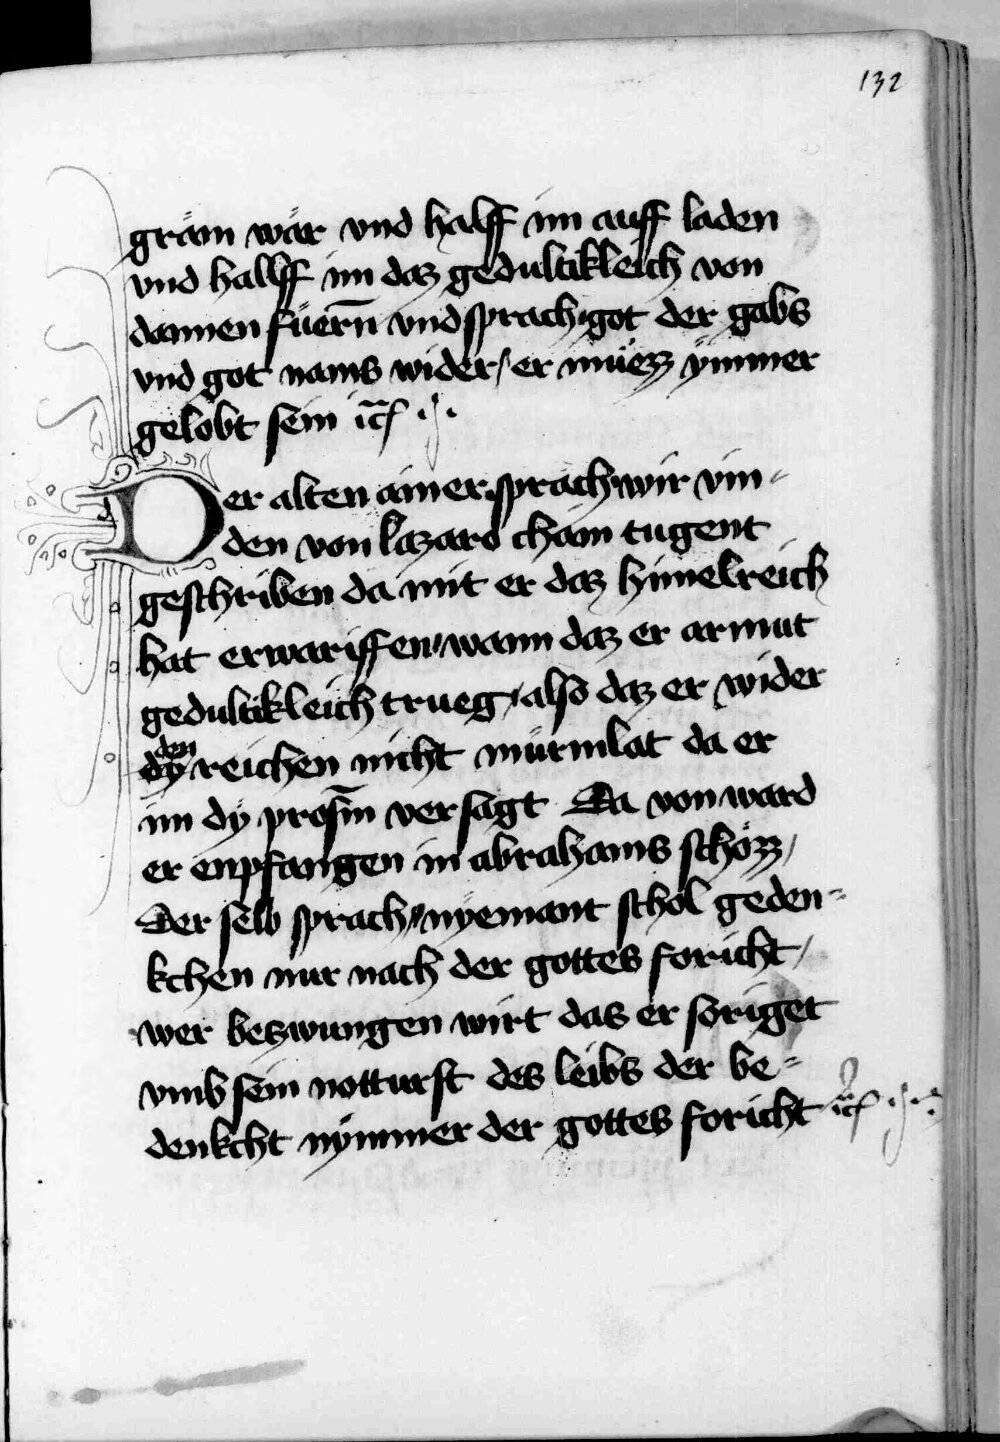 132
gräm wär vnd halff im auff laden
vnd hallff im daz gedultikleich von
dannen füern̄ vnd sprach got der gabs
vnd got nams wider / er müezz ÿmmer
gelobt sein ꝛc̄
Der alten ainer sprach wir vin=
den von lazaro chain tugent
geschriben da mit er daz himelreich
hat erwariffen wann daz er armut
gedultikleich trueg / also daz er wider
dy den reichen nicht mürmlat da er
im dÿ prosm̄ versagt Da von ward
er enpfangen in abrahams schozz /
Der selb sprach nÿemant schol geden=
kchen nur nach der gottes foricht /
wer beszwungen wirt das er soriget
vmb sein notturft des leibs der be=
denkcht nÿmmer der gottes foricht ꝛc̄